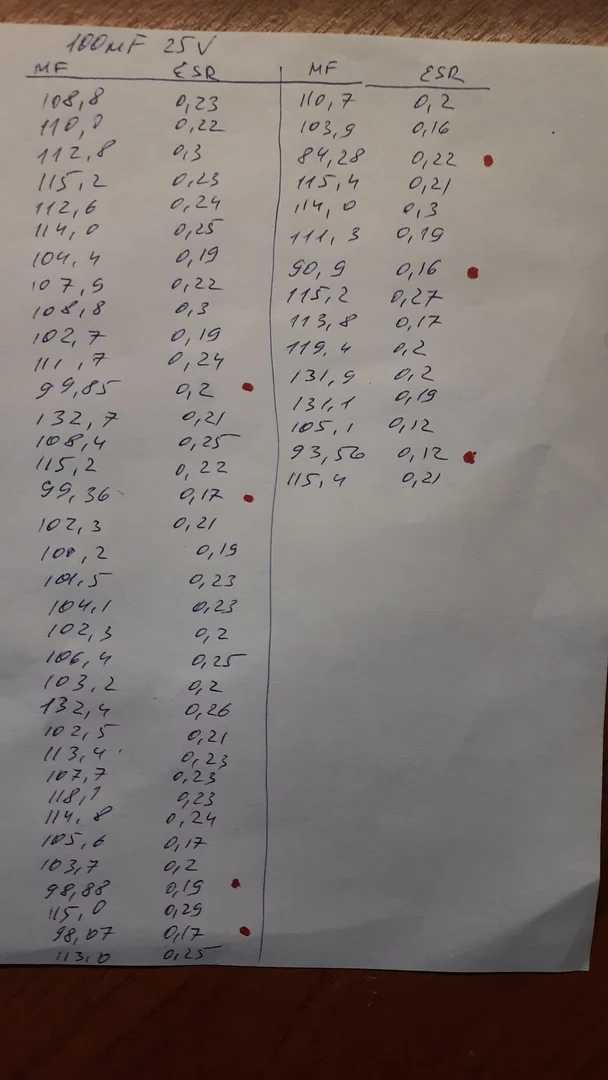 100мF 25V
MF ESR
108,8 0,23
110,0 0,22
112,8 0,3
115,2 0,23
112,6 0,24
114,0 0,25
104,4 0,19
107,9 0,22
108,8 0,3
102,7 0,19
111,7 0,24
99,85 0,2
132,7 0,21
108,4 0,25
115,2 0,22
99,36 0,17
102,3 0,21
100,2 0,19
101,5 0,23
104,1 0,23
102,3 0,2
106,4 0,25
103,2 0,2
132,4 0,26
102,5 0,21
113,4 0,23
107,7 0,23
118,1 0,23
114,8 0,24
105,6 0,17
103,7 0,2
98,88 0,19
115,0 0,29
98,07 0,17
113,0 0,25
MF ESR
110,7 0,2
103,9 0,16
84,28 0,22
115,4 0,21
114,0 0,3
111,3 0,19
90,9 0,16
115,2 0,27
113,8 0,17
119,4 0,2
131,9 0,2
131,1 0,19
105,1 0,12
93,56 0,12
115,4 0,21